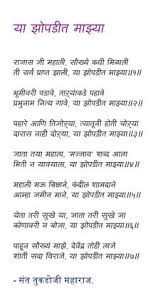 या झोपडीत माझ्या
राजास जी महाली, सौख्ये कधी मिळाली
ती सर्व प्राप्त झाली, या झोपडीत माझ्या॥१॥
भूमीवरी पडावे, ताऱ्यांकडे पहावे
प्रभुनाम नित्य गावे, या झोपडीत माझ्या॥२॥
पहारे आणि तिजोऱ्या, त्यातूनी होती चोऱ्या
दारास नाही दोऱ्या, या झोपडीत माझ्या॥३॥
जाता तया महाला, ‘मज्जाव’ शब्द आला
भिती न यावयाला, या झोपडीत माझ्या॥४॥
महाली मऊ बिछाने, कंदील शामदाने
आम्हा जमीन माने, या झोपडीत माझ्या॥५॥
येता तरी सुखे या, जाता तरी सुखे जा
कोणावरी न बोजा, या झोपडीत माझ्या॥६॥
पाहून सौख्यं माझे, देवेंद्र तोही लाजे
शांती सदा विराजे, या झोपडीत माझ्या॥७॥
- संत तुकडोजी महाराज.